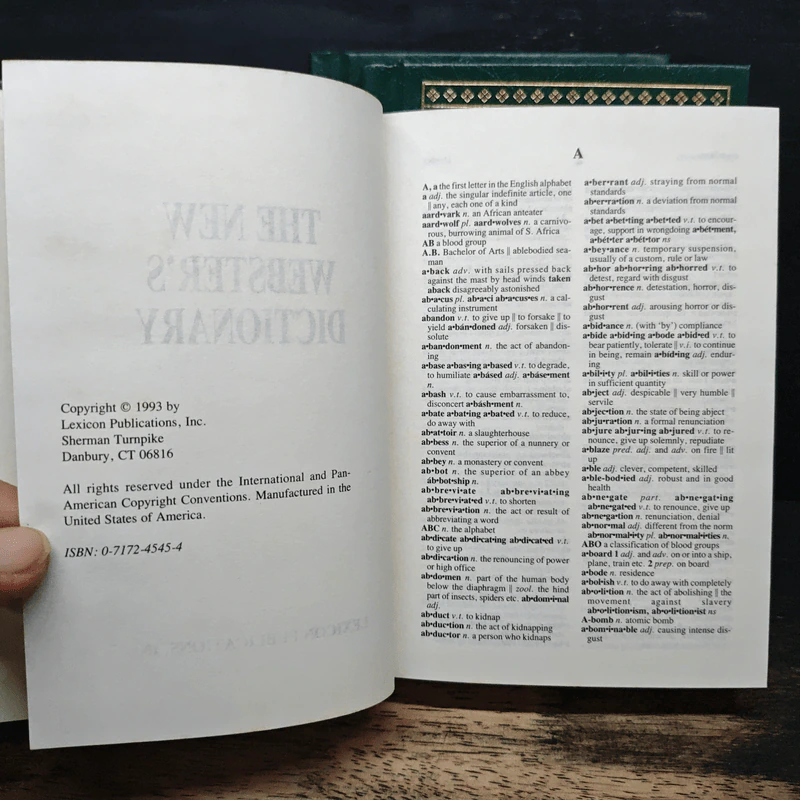 THE NEW
WEBSTER'S
DICTIONARY
Copyright © 1993 by
Lexicon Publications, Inc.
Sherman Turnpike
Danbury, CT 06816
All rights reserved under the International and Pan-
American Copyright Conventions. Manufactured in the
United States of America.
ISBN: 0-7172-4545-4
A
A, a the first letter in the English alphabet
a adj. the singular indefinite article, one
|| any, each one of a kind
aard•vark n. an African anteater
aard•wolf pl. aard•wolves n. a carnivo-
rous, burrowing animal of S. Africa
AB a blood group
A.B. Bachelor of Arts || ablebodied sea-
man
a•back adv. with sails pressed back
against the mast by head winds taken
aback disagreeably astonished
ab•a•cus pl. ab•a•ci ab•a•cus•es n. a cal-
culating instrument
abandon v.t. to give up || to forsake || to
yield a•bán•doned adj. forsaken || dis-
solute
a•ban•don•ment n. the act of abandon-
ing
a•base a•bas•ing a•based v.t. to degrade,
to humiliate a•básed adj. a•báse•ment
n.
a•bash v.t. to cause embarrassment to,
disconcert a•básh•ment n.
a•bate a•bat•ing a•bat•ed v.t. to reduce,
do away with
ab•at•toir n. a slaughterhouse
ab•bess n. the superior of a nunnery or
convent
ab•bey n. a monastery or convent
ab•bot n. the superior of an abbey
áb•bot•ship n.
ab•bre•vi•ate ab•bre•vi•at•ing
ab•bre•vi•at•ed v.t. to shorten
ab•bre•vi•a•tion n. the act or result of
abbreviating a word
ABC n. the alphabet
ab•di•cate ab•di•cat•ing ab•di•cat•ed v.t.
to give up
ab•di•ca•tion n. the renouncing of power
or high office
ab•do•men n. part of the human body
below the diaphragm || zool. the hind
part of insects, spiders etc. ab•dom•i•nal
adj.
ab•duct v.t. to kidnap
ab•duc•tion n. the act of kidnapping
ab•duc•tor n. a person who kidnaps
a•ber•rant adj. straying from normal
standards
ab•er•ra•tion n. a deviation from normal
standards
a•bet a•bet•ting a•bet•ted v.t. to encour-
age, support in wrongdoing a•bét•ment,
a•bét•ter a•bét•tor ns
a•bey•ance n. temporary suspension,
usually of a custom, rule or law
ab•hor ab•hor•ring ab•horred v.t. to
detest, regard with disgust
ab•hor•rence n. detestation, horror, dis-
gust
ab•hor•rent adj. arousing horror or dis-
gust
a•bid•ance n. (with 'by') compliance
a•bide a•bid•ing a•bode a•bid•ed v.t. to
bear patiently, tolerate || v.i. to continue
in being, remain a•bíd•ing adj. endur-
ing
a•bil•i•ty pl. a•bil•i•ties n. skill or power
in sufficient quantity
ab•ject adj. despicable || very humble ||
servile
ab•jec•tion n. the state of being abject
ab•ju•ra•tion n. a formal renunciation
ab•jure ab•jur•ing ab•jured v.t. to re-
nounce, give up solemnly, repudiate
a•blaze pred. adj. and adv. on fire || lit
up
a•ble adj. clever, competent, skilled
a•ble-bod•ied adj. robust and in good
health
ab•ne•gate part. ab•ne•gat•ing
ab•ne•gat•ed v.t. to renounce, give up
ab•ne•ga•tion n. renunciation, denial
ab•nor•mal adj. different from the norm
ab•nor•mal•i•ty pl. ab•nor•mal•i•ties n.
ABO a classification of blood groups
a•board 1 adj. and adv. on or into a ship,
plane, train etc. 2 prep. on board
a•bode n. residence
a•bol•ish v.t. to do away with completely
ab•o•li•tion n. the act of abolishing || the
movement against slavery
ab•o•lí•tion•ism, ab•o•lí•tion•ist ns
A-bomb n. atomic bomb
a•bom•i•na•ble adj. causing intense dis-
gust